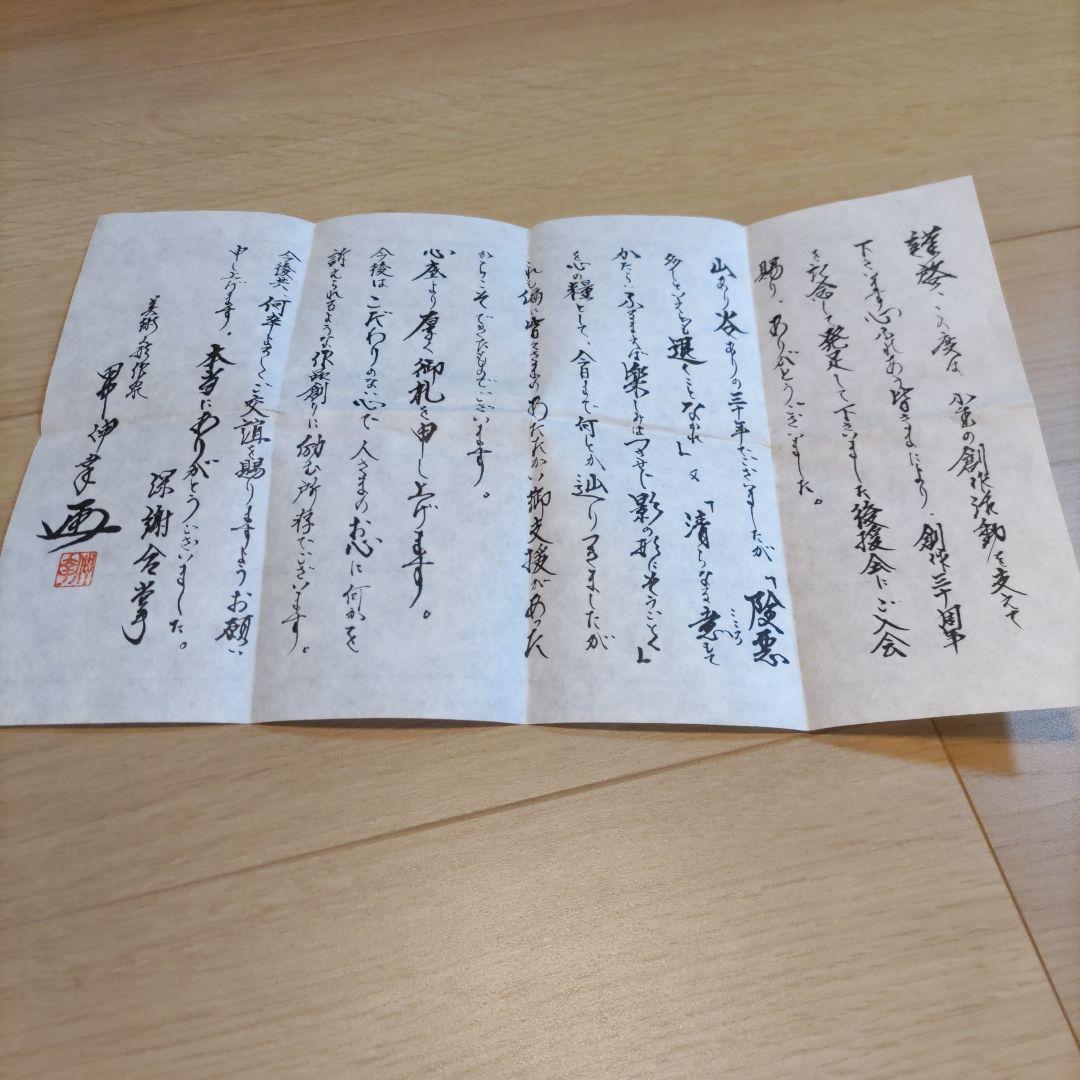 謹啓、この度は 小生の創作活動を支えて
下さいます心ふれあう皆さまにより、創作三十周年
を記念して発足して下さいました後援会にご入会
賜り、ありがとうございました。
山あり谷ありの三十年でございましたが「険悪
多しといえども退くことなかれ」又「清らなる意もて
こころ
かたらふるまえば楽しみはつきせじ影の形にそうごとく」
を心の糧として、今日まで何とか辿りつきましたが
これも偏に皆さまのあたたかい御支援があった
からこそできたものでございます。
心底より厚く御札を申し上げます。
今後はこだわりのない心で人さまのお心に何かを
訴えられるような作品創りに励む所存でございます。
今後共、何卒よろしくご交誼を賜りますようお願い
申し上げます。本当にありがとうございました。
深謝合掌
美術人形作家
甲伊